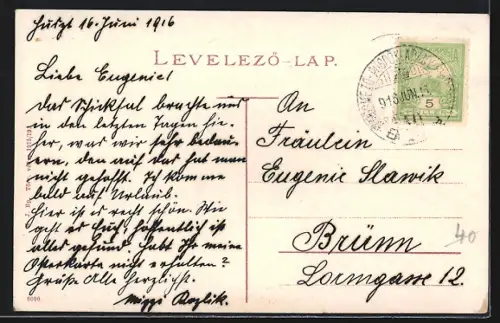 Huszt 16. Juni 1916
LEVELEZŐ-LAP.
Liebe Eugenie!
Das Schicksal brachte uns
in den letzten Tagen hie-
her, was wir sehr bedau-
ern, den auf das hat man
nicht gehofft. Ich komme
bald auf Urlaub.
Hier ist es recht schön. Wie
geht es Euch, hoffentlich ist
alles gesund. Habt Ihr meine
Osterkarte nicht erhalten?
Grüße Alle Herzlichst.
Mizzi Kozlik.
An
Fräulein
Eugenie Slawik
Brünn
Lormgasse 12.
5
40